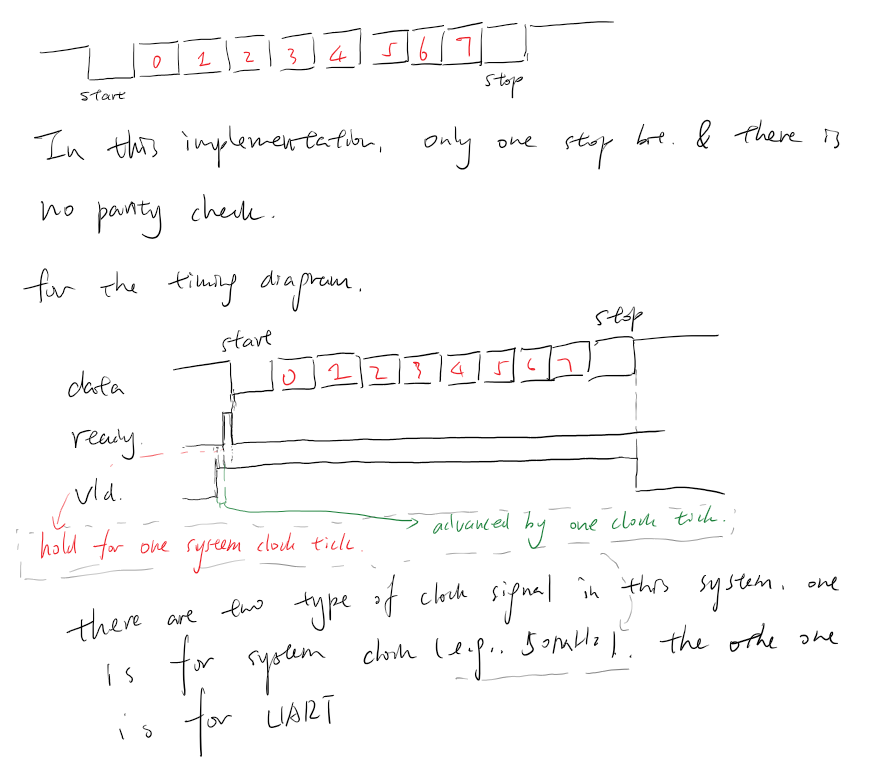 0 1 2 3 4 5 6 7
start stop
In this implementation, only one stop bit. & there is
no parity check.
for the timing diagram.
start stop
data 0 1 2 3 4 5 6 7
ready.
vld.
advanced by one clock tick.
hold for one system clock tick.
there are two type of clock signal in this system. one
is for system clock (e.g.. 50MHz). the othe one
is for UART